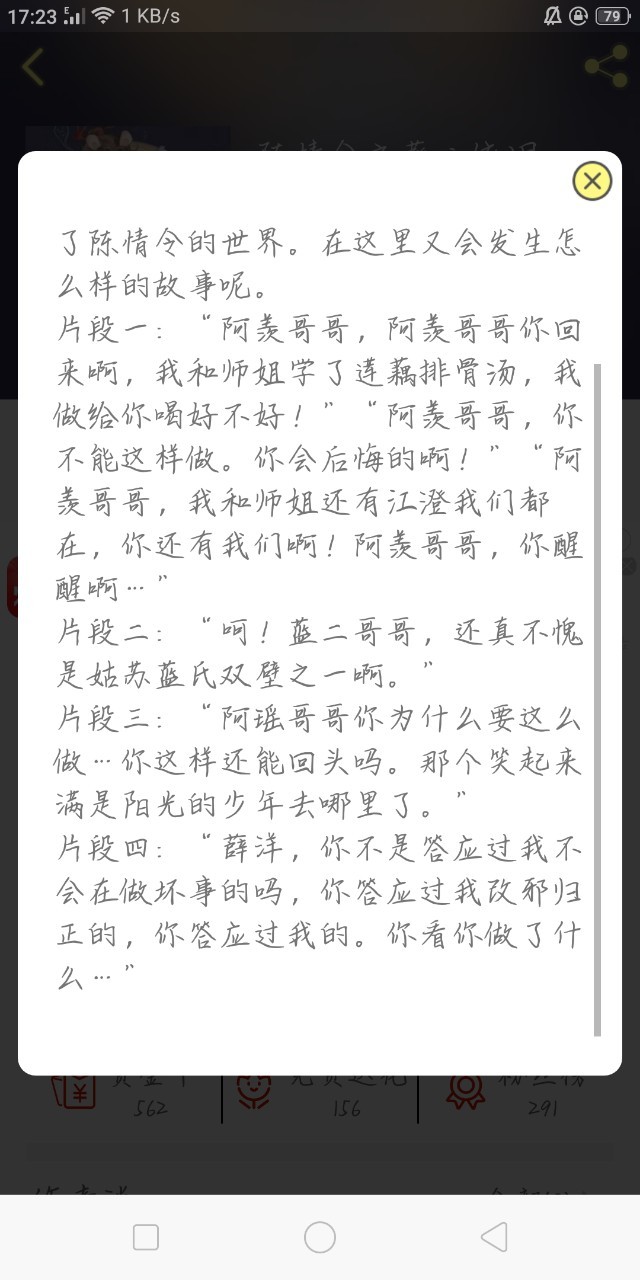 17:23 E 1 KB/s 79
了陈情令的世界。在这里又会发生怎
么样的故事呢。
片段一：“阿羡哥哥，阿羡哥哥你回
来啊，我和师姐学了莲藕排骨汤，我
做给你喝好不好！”“阿羡哥哥，你
不能这样做。你会后悔的啊！”“阿
羡哥哥，我和师姐还有江澄我们都
在，你还有我们啊！阿羡哥哥，你醒
醒啊…”
片段二：“呵！蓝二哥哥，还真不愧
是姑苏蓝氏双壁之一啊。”
片段三：“阿瑶哥哥你为什么要这么
做…你这样还能回头吗。那个笑起来
满是阳光的少年去哪里了。”
片段四：“薛洋，你不是答应过我不
会在做坏事的吗，你答应过我改邪归
正的，你答应过我的。你看你做了什
么…”
562 156 291